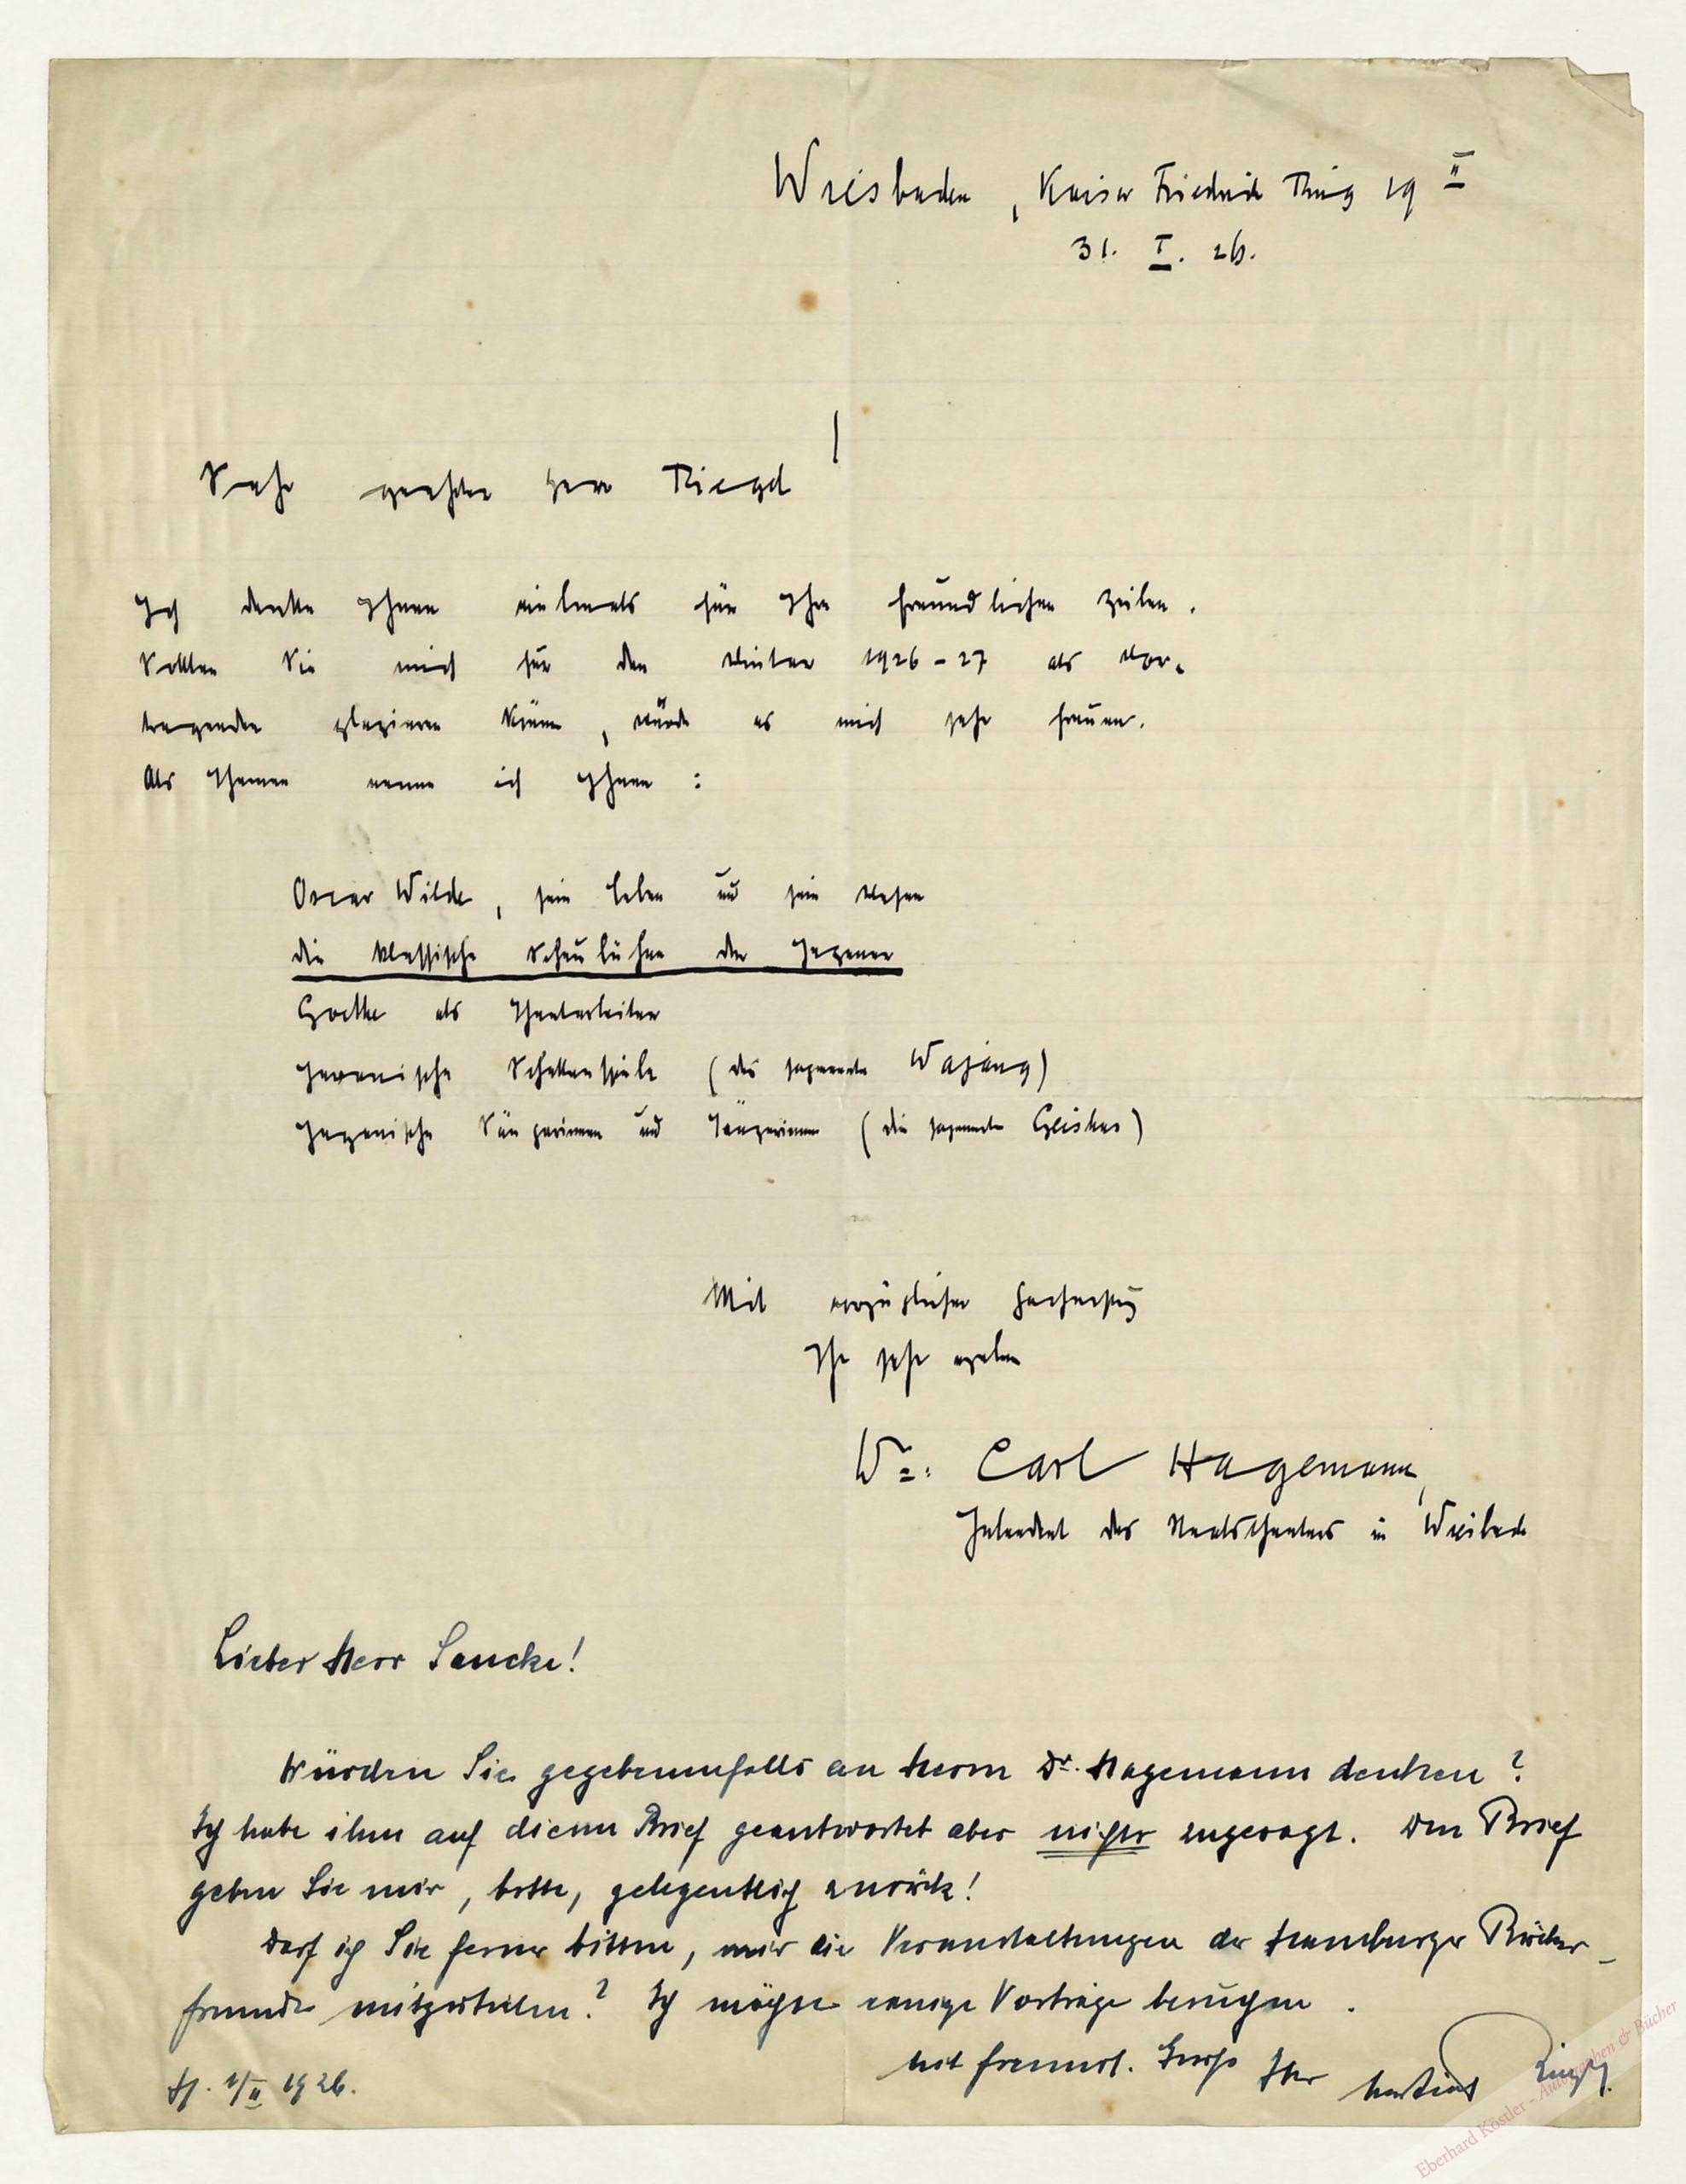 Wiesbaden, Kaiser Friedrich Ring 19 II
31. I. 26.
Sehr geehrter Herr Riegel!
Ich danke Ihnen vielmals für Ihre freundlichen Zeilen.
Sollten Sie mich für den Winter 1926-27 als Vor-
tragenden plazieren können, würde es mich sehr freuen.
Als Themen nenne ich Ihnen:
Oscar Wilde, sein Leben und sein Wesen
die klassische Schaubühne der Japaner
Goethe als Theaterleiter
Javanische Schattenspiele (das sogenannte Wajang)
Japanische Sängerinnen und Tänzerinnen (die sogenannten Geishas)
Mit vorzüglicher Hochachtung
Ihr sehr ergebener
Dr. Carl Hagemann,
Intendant des Staatstheaters in Wiesbaden
Lieber Herr Sancke!
Würden Sie gegebenenfalls an Herrn Dr. Hagemann denken?
Ich habe ihm auf diesen Brief geantwortet aber nichts zugesagt. Den Brief
geben Sie mir, bitte, gelegentlich zurück!
Darf ich Sie ferner bitten, mir die Veranstaltungen der Hamburger Bücher-
freunde mitzuteilen? Ich möchte einige Vorträge besuchen.
Mit freundl. Gruß Ihr
H. 2/II 1926.
Eberhard Köstler - Autographen & Bücher